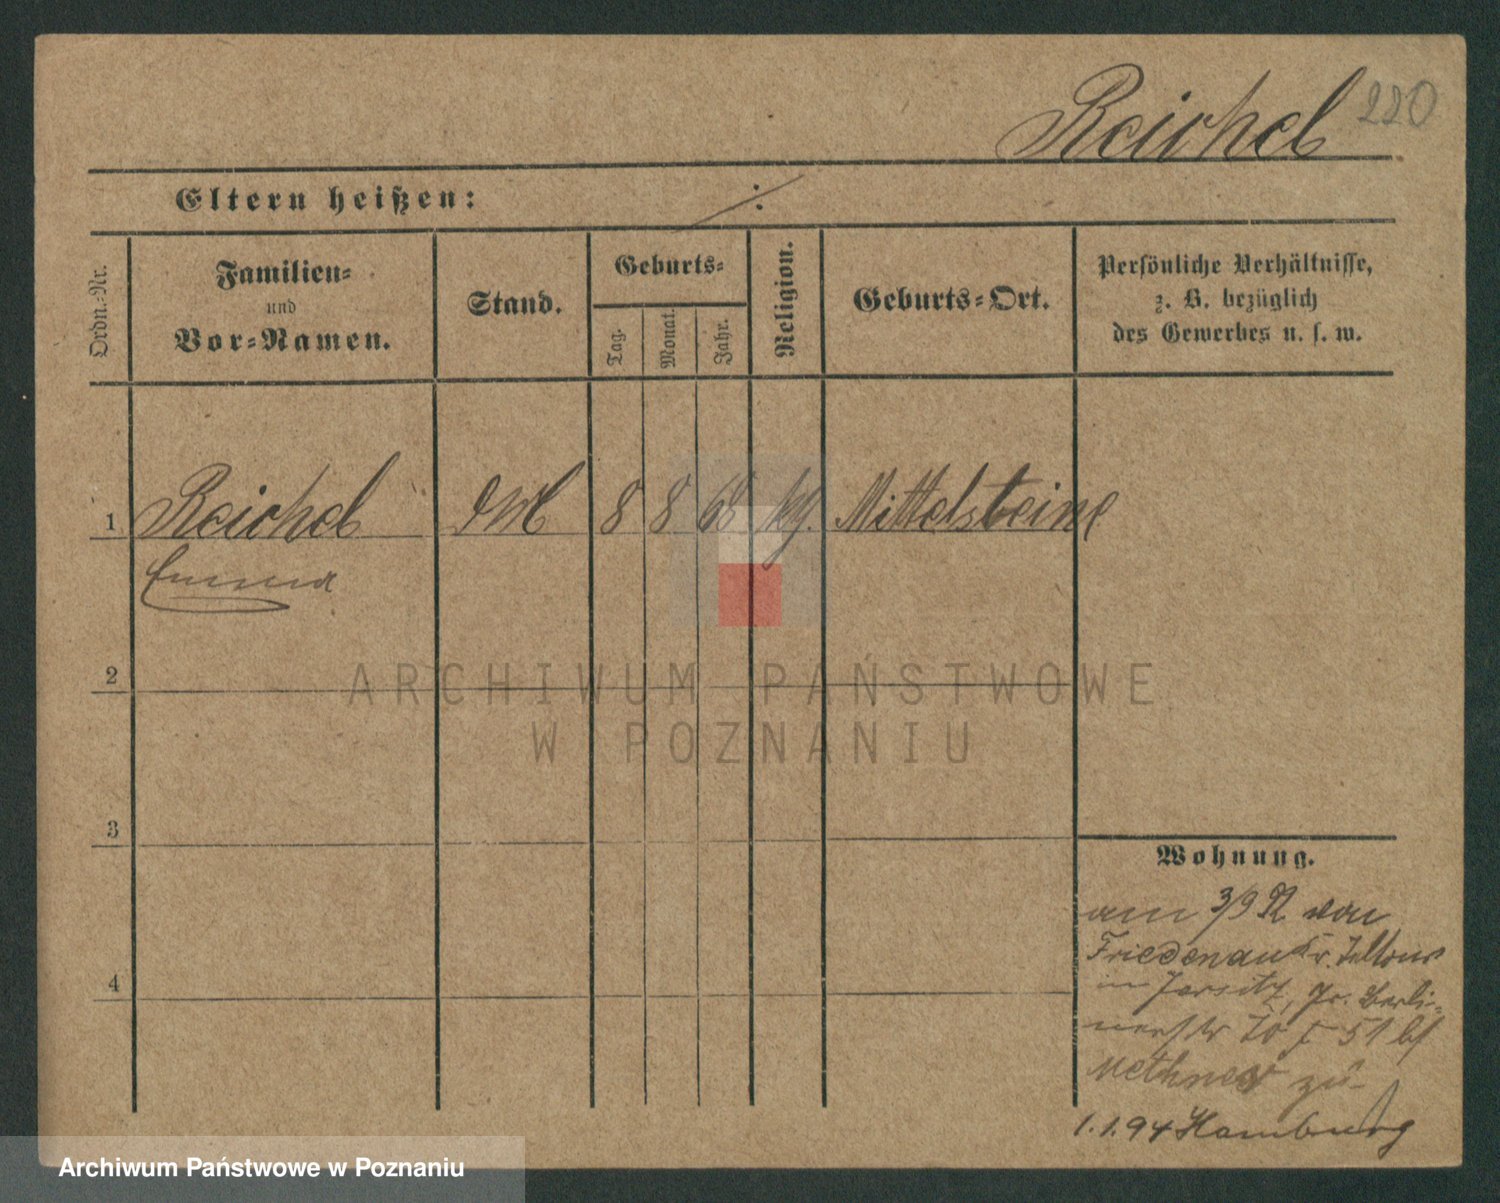 Reichel 220
Eltern heißen: ⁒
Ordn.-Nr.
Familien-
und
Vor-Namen.
Stand.
Geburts-
Tag.
Monat.
Jahr.
Religion.
Geburts-Ort.
Persönliche Verhältnisse,
z. B. bezüglich
des Gewerbes u. s. w.
1 Reichel 8 8 68 kg. Mittelsteine
Emma
2
ARCHIWUM PAŃSTWOWE
W POZNANIU
3
Wohnung.
am 3/9 92 von
Friedenau Kr. Teltow
4
in Jersitz, Gr. Berli-
nerstr 70 51 bf
Methner zu-
1.1.94 Hamburg
Archiwum Państwowe w Poznaniu